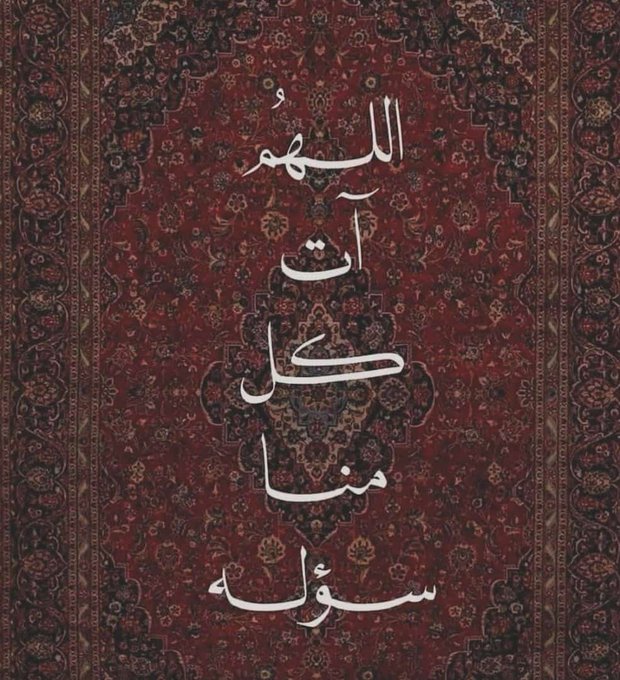 اللهمُ
آت
كل
منا
سؤله